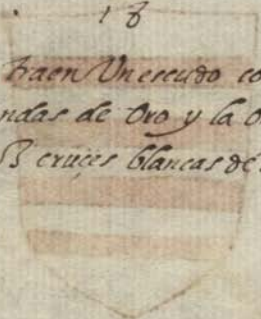 18
Traen Un escudo co
ndas de Oro y la o
B cruces blancas de